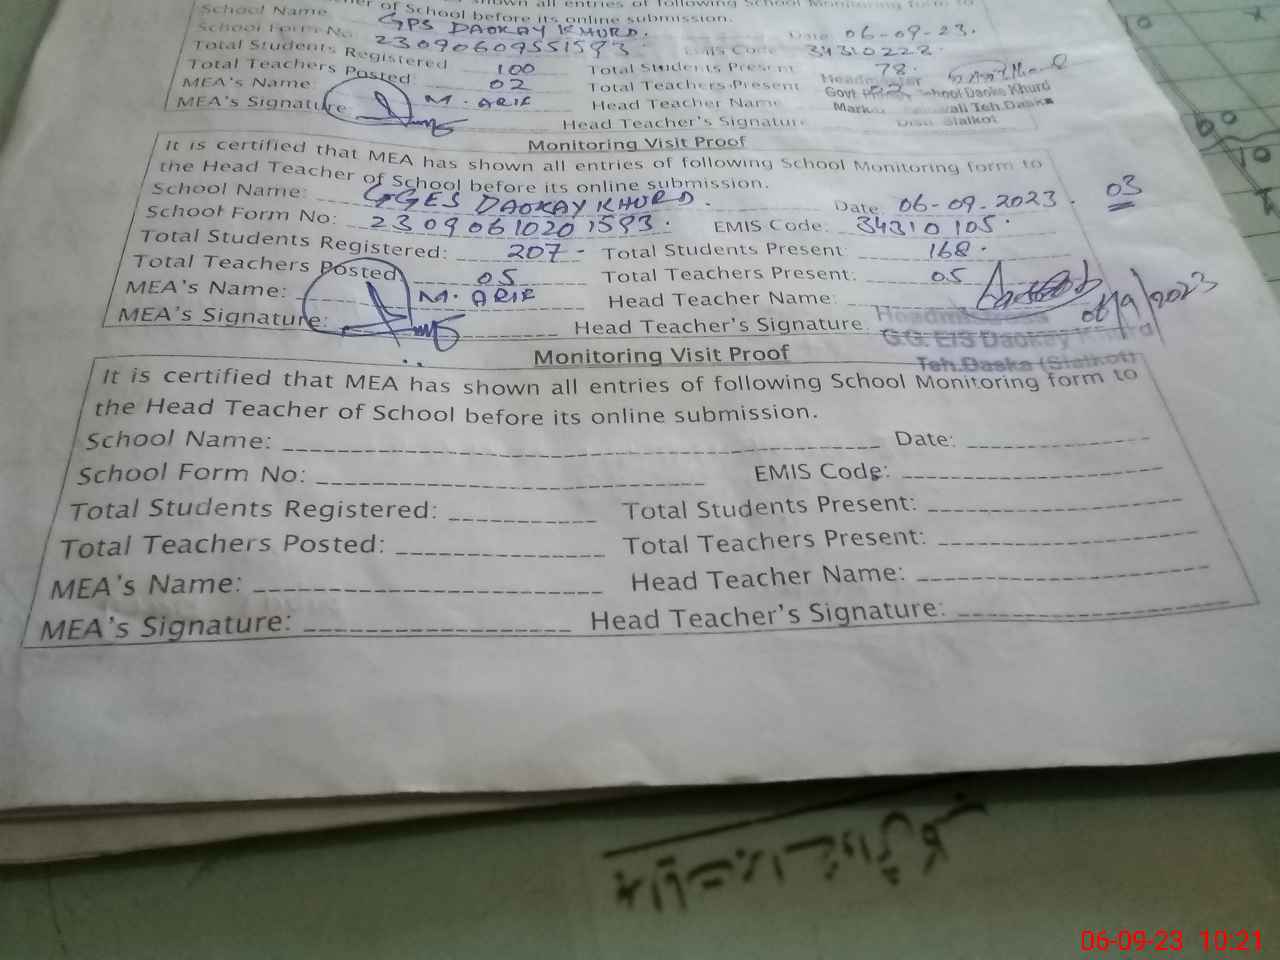 shown all entries of following School Monitoring form to
of School before its online submission.
School Name GPS DAOKAY KHURD.
School Form No 23090609551593. Date 06-09-23.
EMIS Code 34310228.
Total Students Registered 100 Total Students Present 78.
Total Teachers Posted 02 Total Teachers Present
MEA's Name: M. ARIF Head Teacher Name
MEA's Signature Head Teacher's Signature
Headmaster
Govt School Daoke Khurd
Teh. Daska
Sialkot
Monitoring Visit Proof
It is certified that MEA has shown all entries of following School Monitoring form to
the Head Teacher of School before its online submission.
School Name: GGES DAOKAY KHURD. Date 06-09-2023. 03
School Form No: 23090610201593. EMIS Code: 34310105.
Total Students Registered: 207- Total Students Present: 168.
Total Teachers Posted 05 Total Teachers Present: 05
MEA's Name: M. ARIF Head Teacher Name:
MEA's Signature: Head Teacher's Signature.
G.G.E/S Daokay
Teh.Daska (Sialkot)
Monitoring Visit Proof
It is certified that MEA has shown all entries of following School Monitoring form to
the Head Teacher of School before its online submission.
School Name: Date:
School Form No: EMIS Code:
Total Students Registered: Total Students Present:
Total Teachers Posted: Total Teachers Present:
MEA's Name: Head Teacher Name:
MEA's Signature: Head Teacher's Signature:
06-09-23 10:21